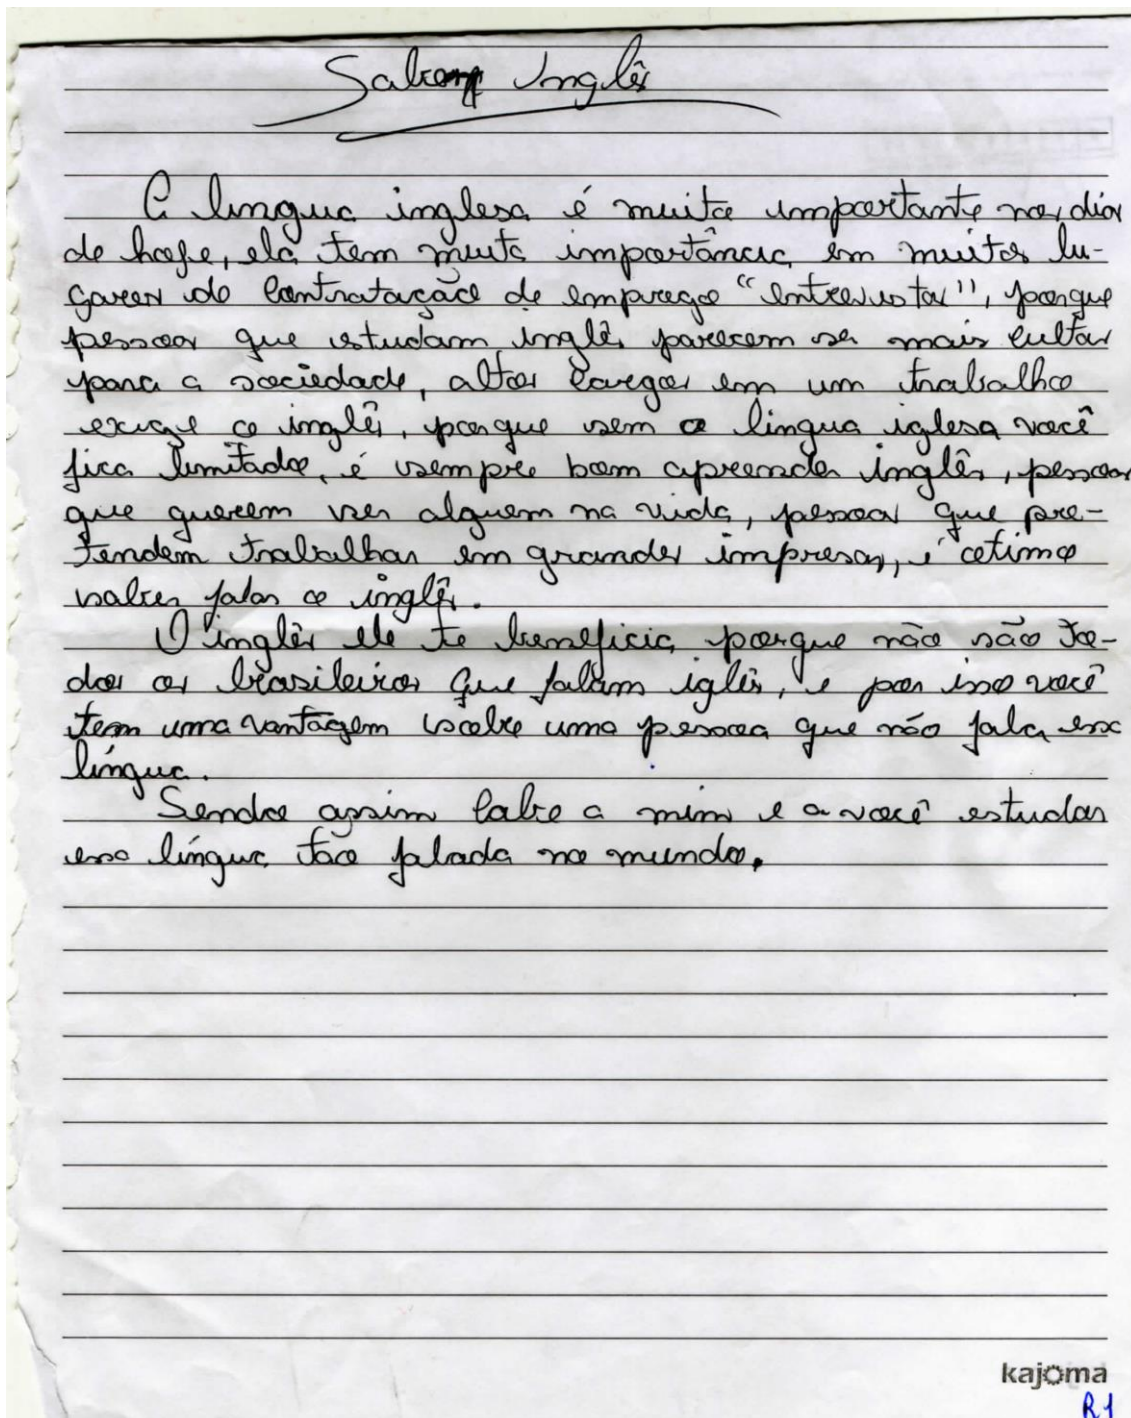 Saber Inglês
A lingua inglesa é muito importante nos dias
de hoje, ela tem muita importância em muitos lu-
gares de contratação de emprego "entrevistas", porque
pessoas que estudam inglês parecem ser mais cultas
para a sociedade, altos cargos em um trabalho
exige o inglês, porque sem a lingua iglesa você
fica limitado, é sempre bom aprender inglês, pessoas
que querem ser alguem na vida, pessoas que pre-
tendem trabalhar em grandes impresas, é otimo
saber falar o inglês.
O inglês ele te beneficia, porque não são to-
dos os brasileiros que falam iglês, e por isso você
tem uma vantagem sobre uma pessoa que não fala essa
língua.
Sendo assim cabe a mim e a você estudar
essa língua tão falada no mundo.
kajoma
R1